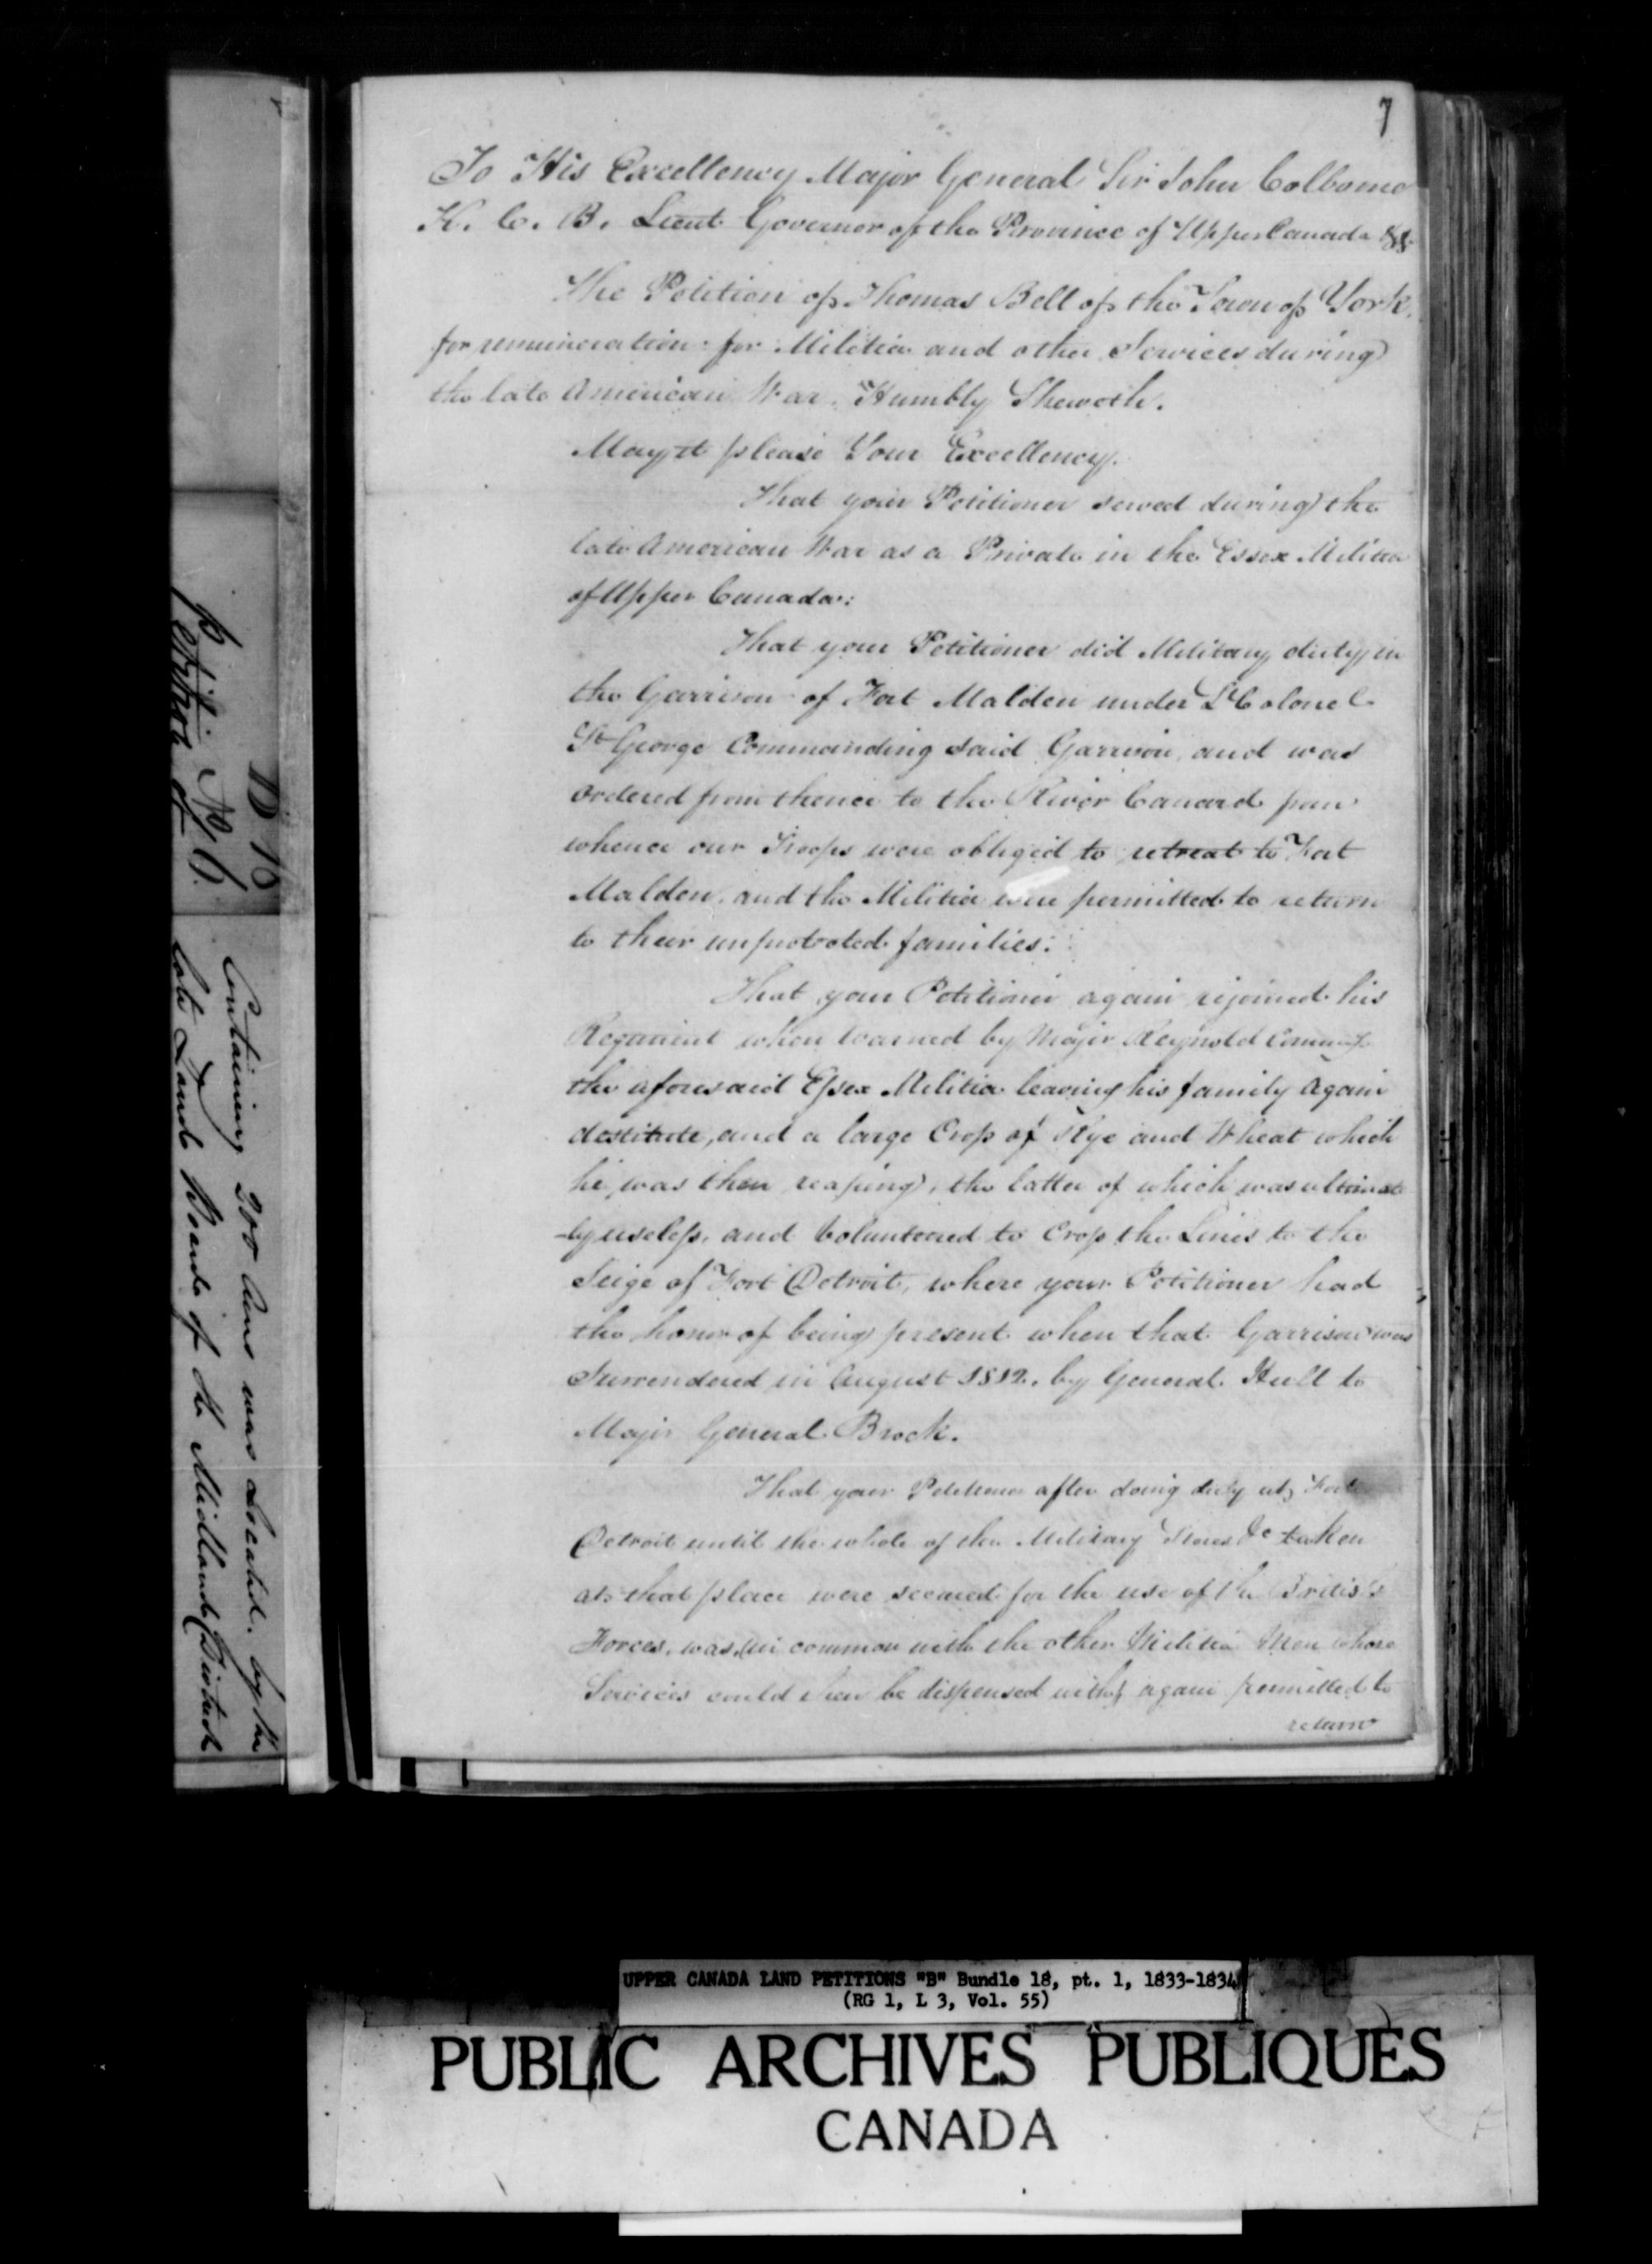 7
To His Excellency Major General Sir John Colborne
K. C. B. Lieut Governor of the Province of Upper Canada &&
The Petition of Thomas Bell of the Town of York,
for remuneration for Militia and other Services during
the late American War. Humbly Sheweth.
May it please Your Excellency.
That your Petitioner served during the
late American War as a Private in the Essex Militia
of Upper Canada:
That your Petitioner did Military duty in
the Garrison of Fort Malden under Lt Colonel
St George Commanding said Garrison, and was
ordered from thence to the River Canard from
whence our Troops were obliged to retreat to Fort
Malden, and the Militia were permitted to return
to their unprotected families:
That your Petitioner again rejoined his
Regiment when warned by Major Reynold Comm
the aforesaid Essex Militia leaving his family again
destitute, and a large Crop of Rye and Wheat which
he was then reaping, the latter of which was ultimate
-ly useless, and Volunteered to Cross the Lines to the
Seige of Fort Detroit, where your Petitioner had
the honor of being present when that Garrison was
Surrendered in August 1812. by General Hull to
Major General Brock.
That your Petitioner after doing duty at Fort
Detroit until the whole of the Military Stores &c taken
at that place were secured for the use of the British
Forces, was, (in common with the other Militia Men whose
Services could then be dispensed with) again permitted to
return
B 18
No 6
Petition of
Containing 200 Acres was located by the
late Land Board of the Midland District
UPPER CANADA LAND PETITIONS "B" Bundle 18, pt. 1, 1833-1834
(RG 1, L 3, Vol. 55)
PUBLIC ARCHIVES PUBLIQUES
CANADA